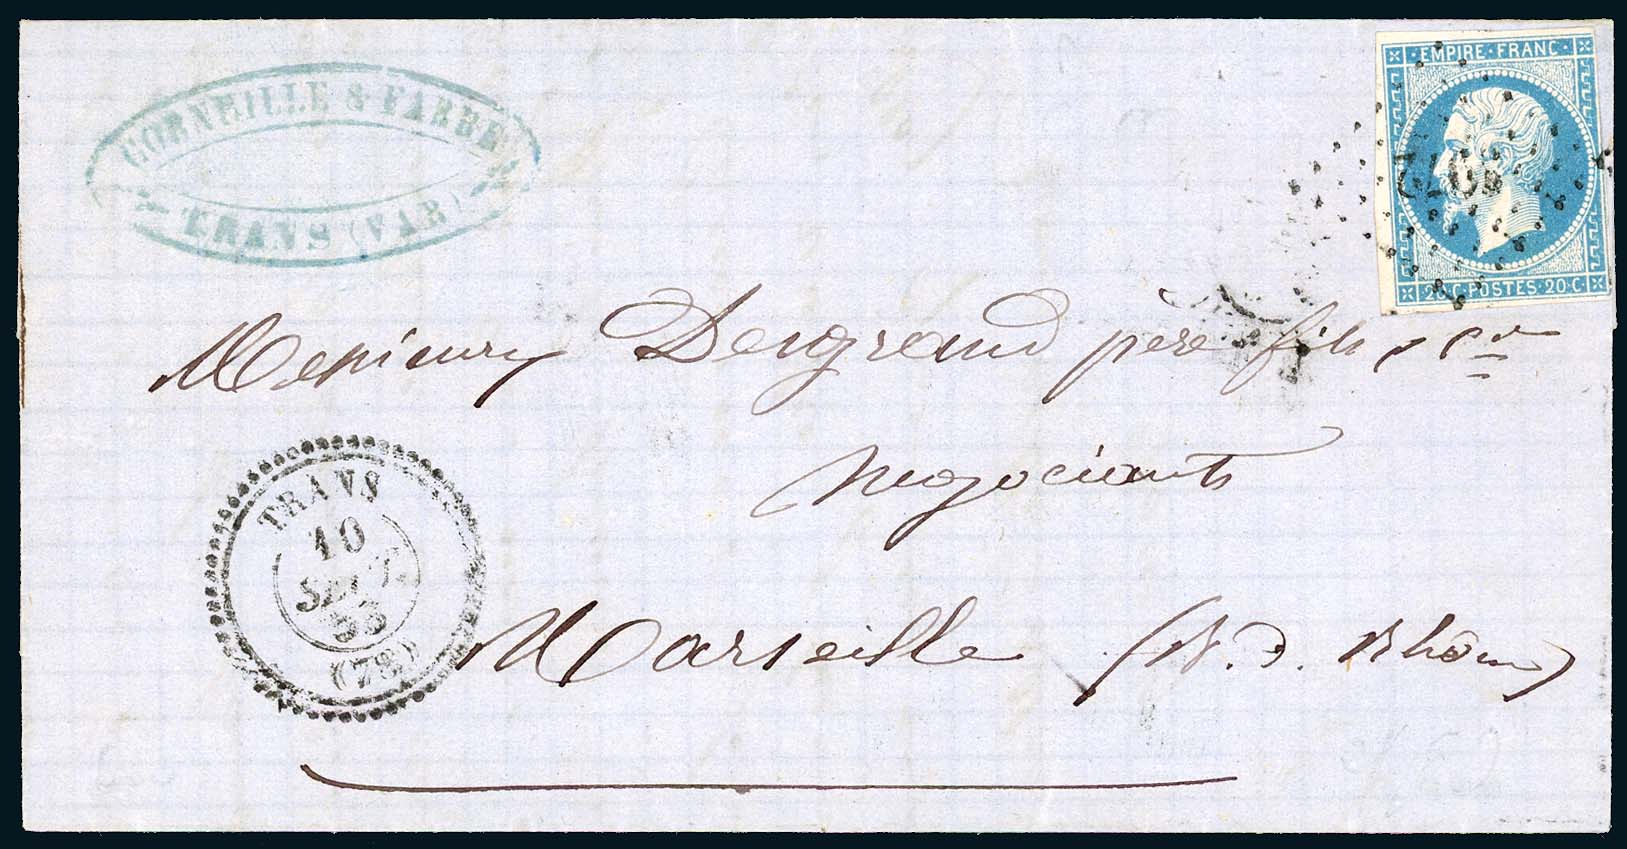 CORNEILLE & FABRE
TRANS (VAR)
EMPIRE · FRANC ·
20 · C · POSTES · 20 · C
Messieurs Desgrand père fils & Cie
Négociants
Marseille (B. d. Rhône)
TRANS
10
SEPT
55
(78)